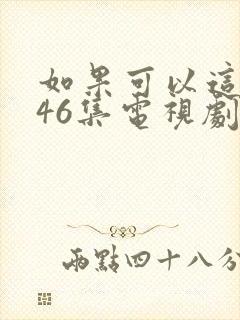 如果可以這
46集電視劇
兩點四十八分